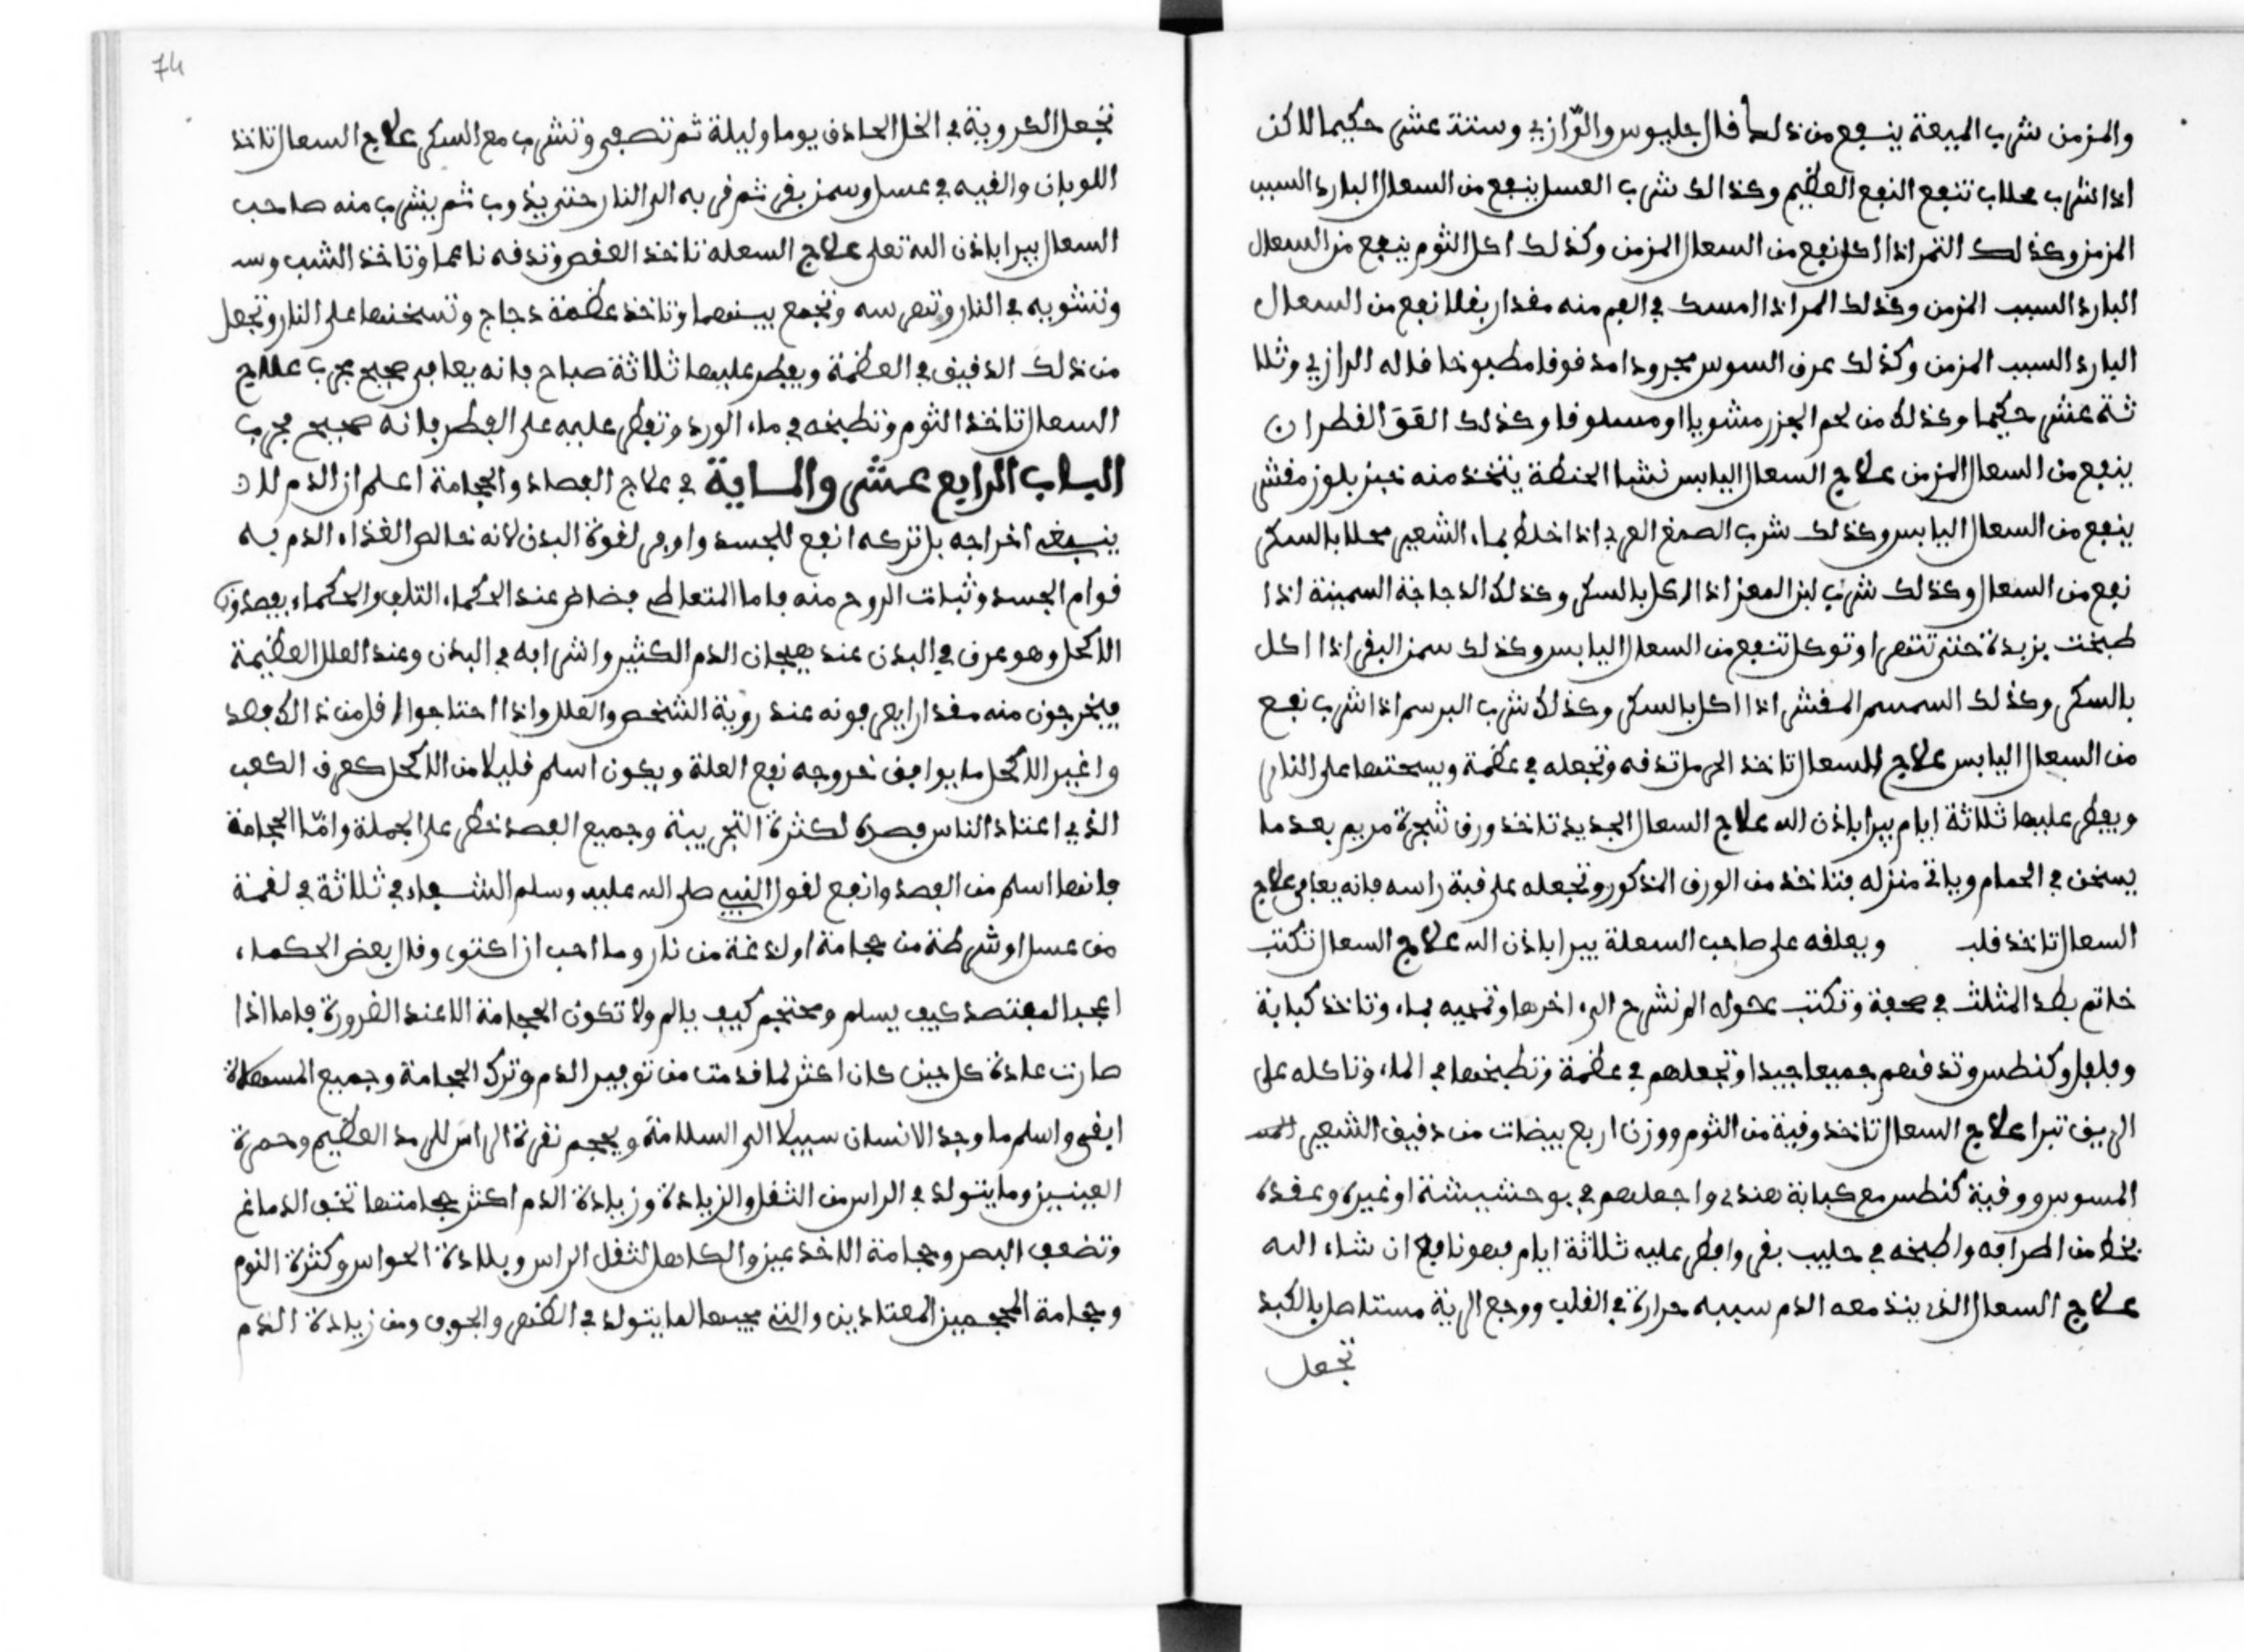 والمزمن شرب الميعة ينفع من ذلك قال جليوس والرّازي وستة عشر حكيما لاكن
اذا شرب محلاب تنفع النفع العظيم وكذالك شرب العسل ينفع من السعال البارد السبب
المزمن وكذلك التمر اذا اكل نفع من السعال المزمن وكذلك اكل الثوم ينفع من السعال
البارد السبب المزمن وكذلك المر اذا امسك في الفم منه مقدار بقلا نفع من السعال
البارد السبب المزمن وكذلك عرق السوس مجرودا مدقوقا مطبوخا قاله الرازي وثلا
ثة عشر حكيما وكذلك من لحم الجزر مشويا او مسلوقا وكذلك القطران
ينفع من السعال المزمن علاج السعال اليابس نشا الحنطة يتخذ منه خبز بلوز مقشر
ينفع من السعال اليابس وكذلك شرب الصمغ العربي اذا خلط بماء الشعير محلا بالسكر
نفع من السعال وكذلك شرب لبن المعز اذا اكل بالسكر وكذلك الدجاجة السمينة اذا
طبخت بزبدة حتى تتهرا وتوكل تنفع من السعال اليابس وكذلك سمن البقر اذا اكل
بالسكر وكذلك السمسم المقشر اذا اكل بالسكر وكذلك شرب البرسم اذا شرب نفع
من السعال اليابس علاج للسعال تاخذ الحرمل تدقه وتجعله في عظمة ويسخنها على النار
ويفطر عليها ثلاثة ايام يبرا باذن الله علاج السعال الجديد تاخذ ورق شجرة مريم بعد ما
يسخن في الحمام وياتي منزله فتاخذ من الورق المذكور وتجعله على قبة راسه فانه يعافى علاج
السعال تاخذ قلب ويعلقه على صاحب السعلة يبرا باذن الله علاج السعال تكتب
خاتم بطد المثلث في صحفة وتكتب بحوله الم نشرح الى اخرها وتمحيه بماء وتاخذ كبابة
وفلفل وكنطس وتدقهم جميعا جيدا وتجعلهم في عظمة وتطبخها في الماء وتاكله على
الريق تبرا علاج السعال تاخذ وقية من الثوم ووزن اربع بيضات من دقيق الشعير
المسوس ووقية كنطس مع كبابة هندي واجعلهم في بوحشيشة او غيره وعقده
بخط من اطرافه واطبخه في حليب بقر وافطر عليه ثلاثة ايام فهو نافع ان شاء الله
علاج السعال الذي ينذ معه الدم سببه حرارة في القلب ووجع الرية مستاصل بالكبد
تجعل
74
تجعل الكروية في الخل الحاذق يوما وليلة ثم تصفى وتشرب مع السكر علاج السعال تاخذ
اللوبان والقيه في عسل وسمن بقر ثم قربه الى النار حتى يذوب ثم يشرب منه صاحب
السعال يبرا باذن الله تعلى علاج السعلة تاخذ العفص وتدقه ناعما وتاخذ الشب وسـ
وتشويه في النار وتهرسه وتجمع بينهما وتاخذ عظمة دجاج وتسخنها على النار وتجعل
من ذلك الدقيق في العظمة ويفطر عليها ثلاثة صباح فانه يعافى صحيح مجرب علاج
السعال تاخذ الثوم وتطبخه في ماء الورد وتفطر عليه على الفطر فانه صحيح مجرب
الباب الرابع عشر والماية في علاج الفصاد والحجامة اعلم ان الدم لاد
ينبغي اخراجه بل تركه انفع للجسد واوفر لقوة البدن لانه خالص الغذاء الدم به
قوام الجسد وثبات الروح منه فاما المتعاطي فخاطر عند الحكماء التلف والحكماء يفصدون
الاكحل وهو عرق في البدن عند هيجان الدم الكثير واشرافه في البدن وعند العلل العظيمة
فيخرجون منه مقدارا يعرفونه عند روية الشخص والعلل واذا احتاجوا اقل من ذالك فصد
واغير الاكحل ما يوافق خروجه نفع العلة ويكون اسلم قليلا من الاكحل كعرق الكعب
الذي اعتاد الناس فصده لكثرة التجريبة وجميع الفصد خطر على الجملة وامّا الحجامة
فانها اسلم من الفصد وانفع لقول النبي صلى الله عليه وسلم الشفاء في ثلاثة في لقمة
من عسل او شرطة من حجامة او لذغة من نار وما احب ان اكتوى وقال بعض الحكماء
اعجب المفتصد كيف يسلم ومحتجم كيف يالم ولا تكون الحجامة الا عند الضرورة فاما اذا
صارت عادة كل حين كان اكثر لما قدمت من توفير الدم وترك الحجامة وجميع المسهلاة
ابقى واسلم ما وجد الانسان سبيلا الى السلامة ويحجم نقرة الراس للرمد العظيم وحمرة
العينين وما يتولد في الراس من الثقل والزيادة وزيادة الدم اكثر حجامتها تخف الدماغ
وتضعف البصر وحجامة الاخدعين والكاهل لثقل الراس وبلادة الحواس وكثرة النوم
وحجامة المعتادين لما يتولد في الظهر والجوف ومن زيادة الدم